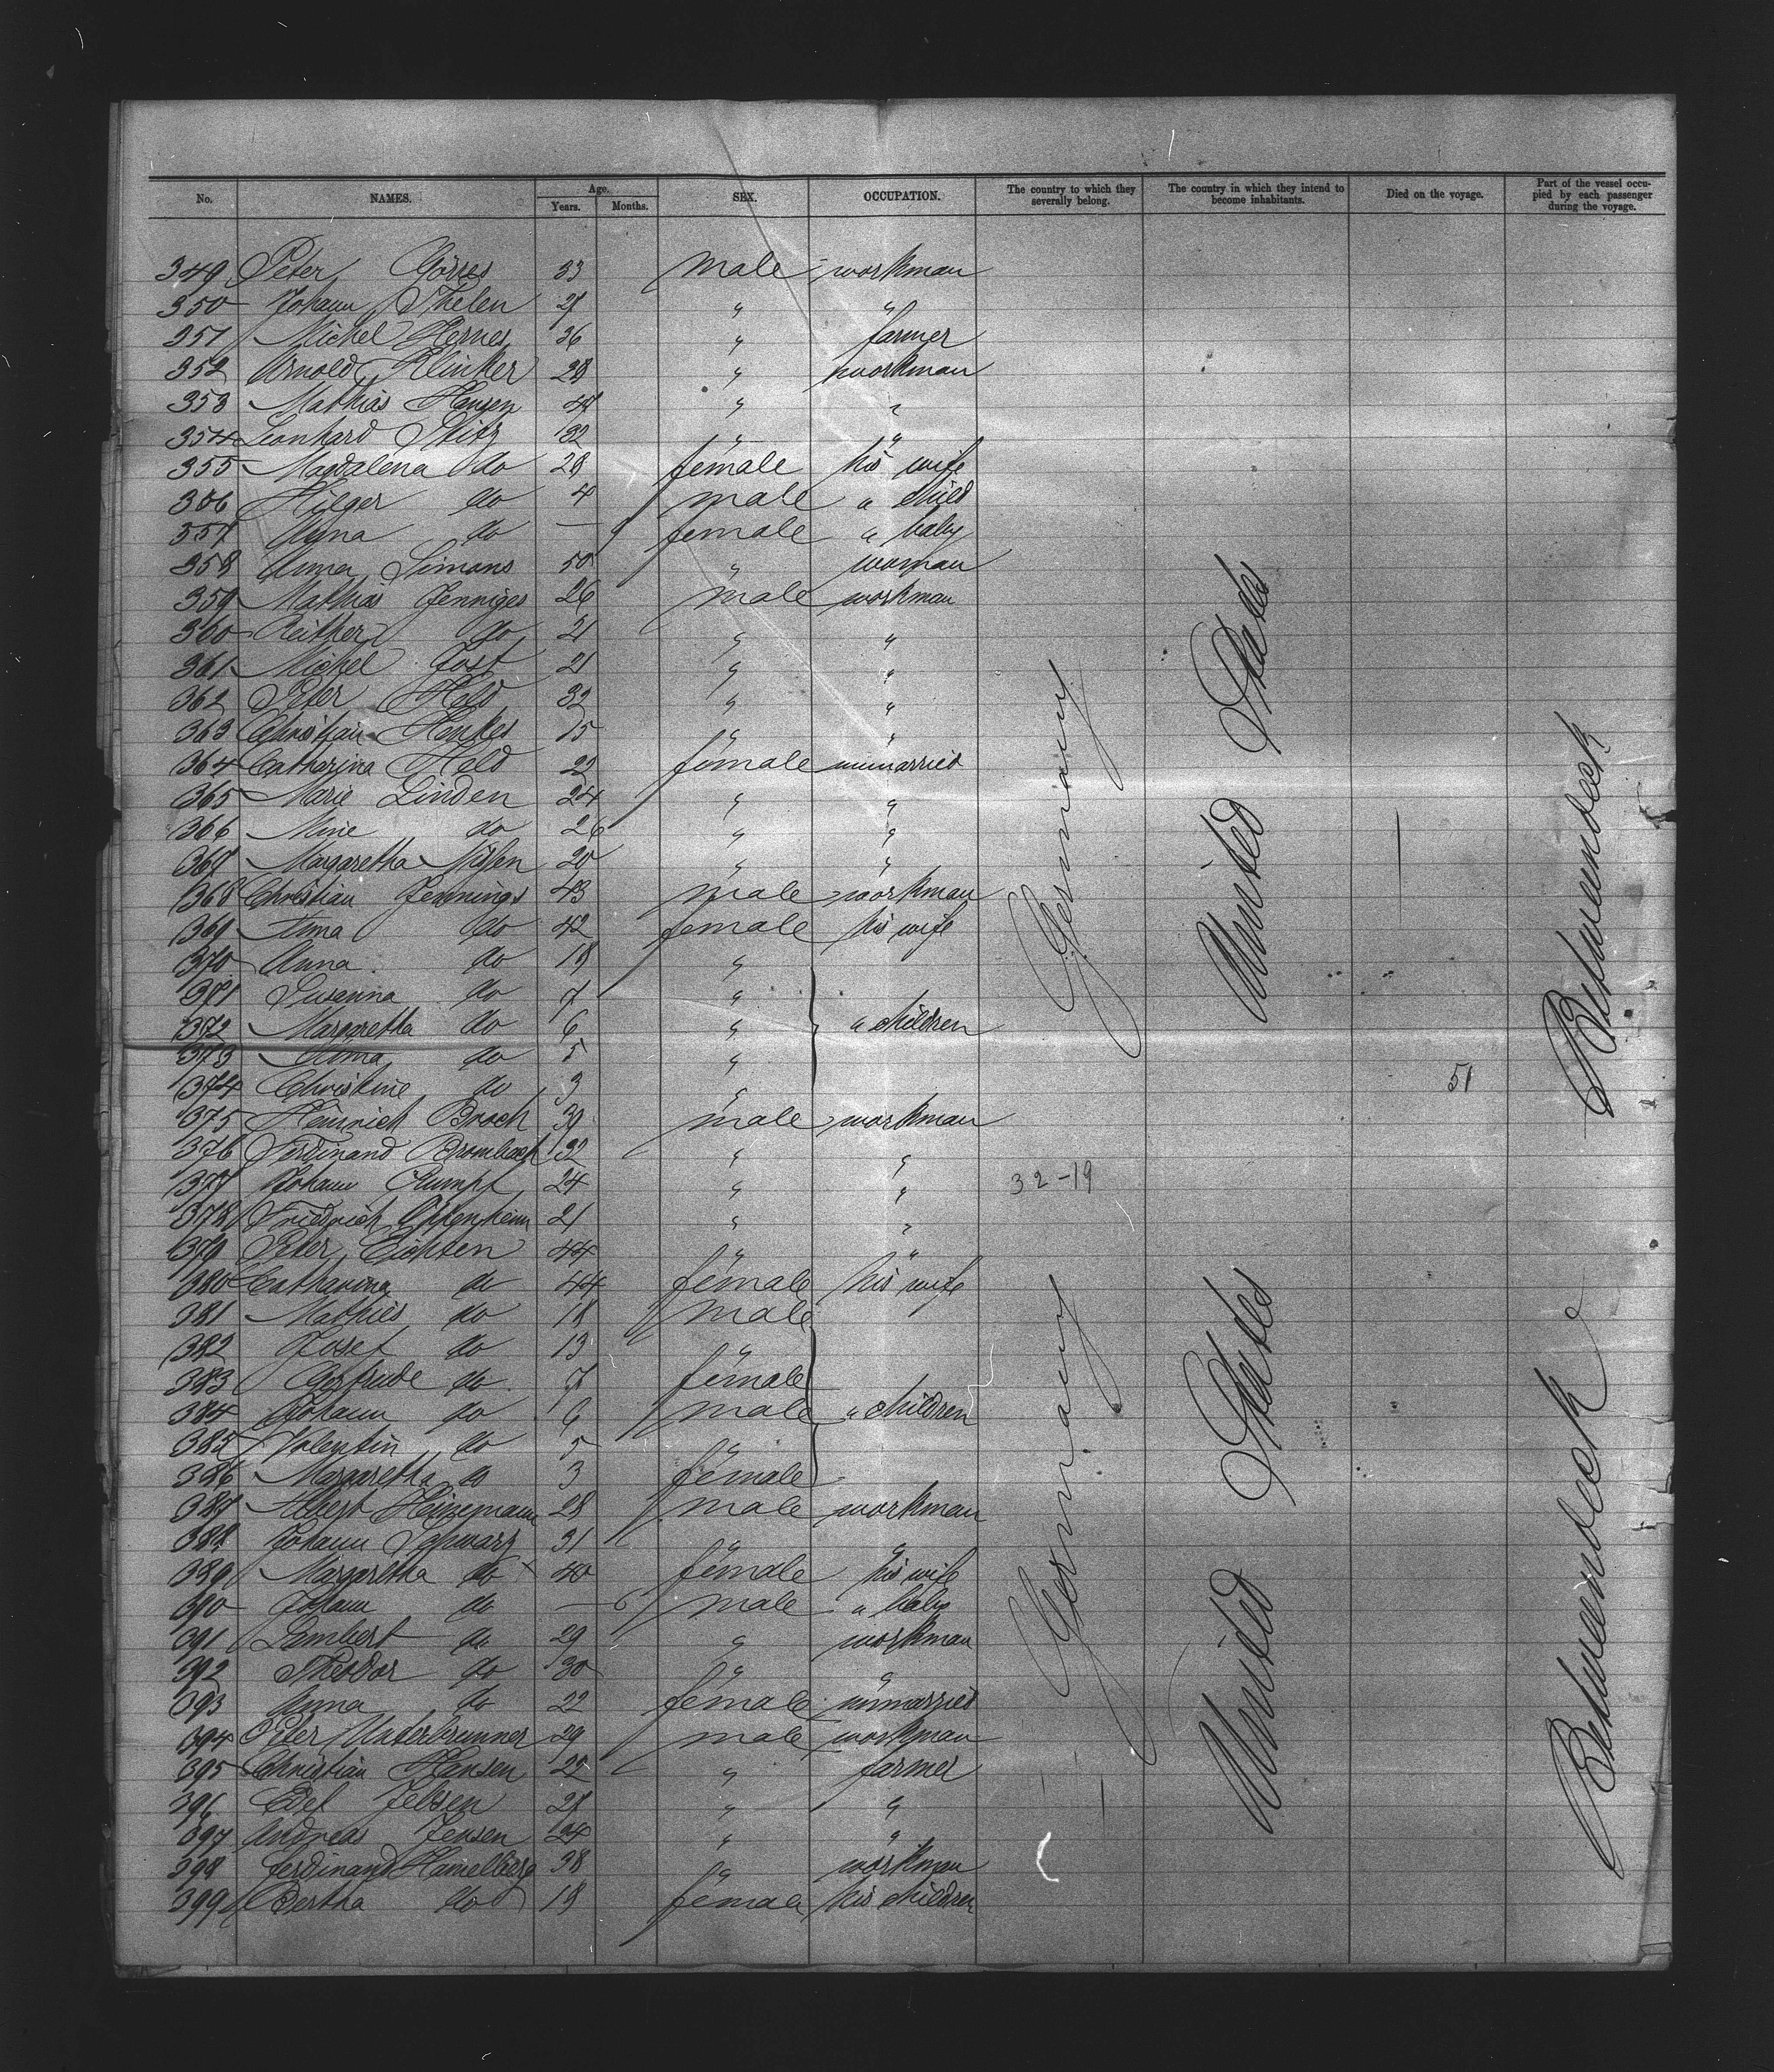 No. NAMES. Age. Years. Months. SEX. OCCUPATION. The country to which they severally belong. The country in which they intend to become inhabitants. Died on the voyage. Part of the vessel occupied by each passenger during the voyage.
349 Peter Görres 33 male workman
350 Johann Thelen 27 " "
351 Michel Hermes 36 " farmer
352 Arnold Klinker 28 " workman
353 Mathias Hansen 47 " "
354 Leonhard Stitz 32 " "
355 Magdalena do 28 female his wife
356 Hilger do 4 male " child
357 Anna do — 9 female " baby
358 Anna Simons 50 " woman
359 Mathias Jenniges 26 male workman
360 do 21 " "
361 Michel Jost 21 " "
362 Peter Held 32 " "
363 Christian Henkes 15 " "
364 Catharina Held 22 female unmarried
365 Marie Linden 24 " "
366 Mine do 26 " "
367 Margaretha 20 " "
368 Christian Jennings 43 male workman
369 Anna do 42 female his wife
370 Anna do 18 "
371 Susanna do 7 "
372 Margaretha do 6 " " children
373 Anna do 5 "
374 Christine do 3 "
375 Heinrich Broch 39 male workman
376 Ferdinand Brombach 32 " "
377 Johann Rumpf 24 " "
378 Friedrich Oppenheim 21 " "
379 Peter Eichten 44 " "
380 Catharina do 44 female his wife
381 Mathies do 18 male
382 Josef do 13 "
383 Gertrude do 7 female
384 Johann do 6 male " children
385 Valentin do 5 "
386 Margaretha do 3 female
387 Albert Heinemann 28 male workman
388 Johann Schwarz 31 " "
389 Margaretha do 40 female his wife
390 Johann do — 6 male " baby
391 Lambert do 29 " workman
392 Theodor do 30 " "
393 Anna do 22 female unmarried
394 Peter Unterbrunner 29 male workman
395 Christian Hansen 22 " farmer
396 Edel Jebsen 27 " "
397 Andreas Jensen 24 " "
398 Ferdinand Hamelberg 38 " workman
399 Bertha do 18 female his children
Germany
United States
Betweendeck
51
32-19
Germany
United States
Betweendeck